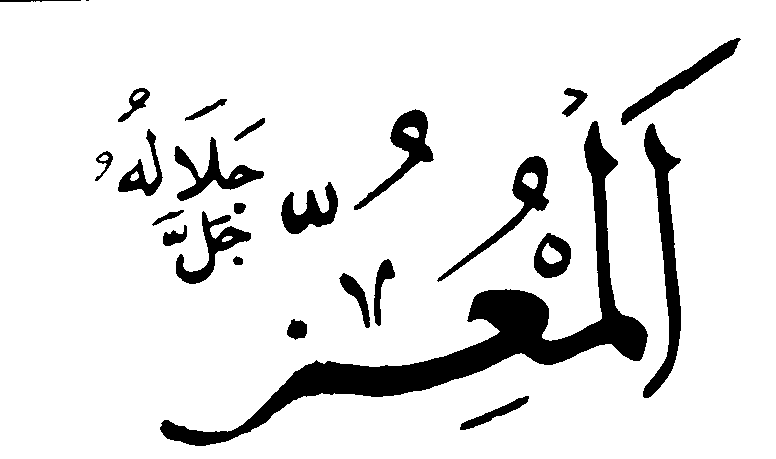 اَلْمُعِزُّ
جَلَّ جَلَالُهُ